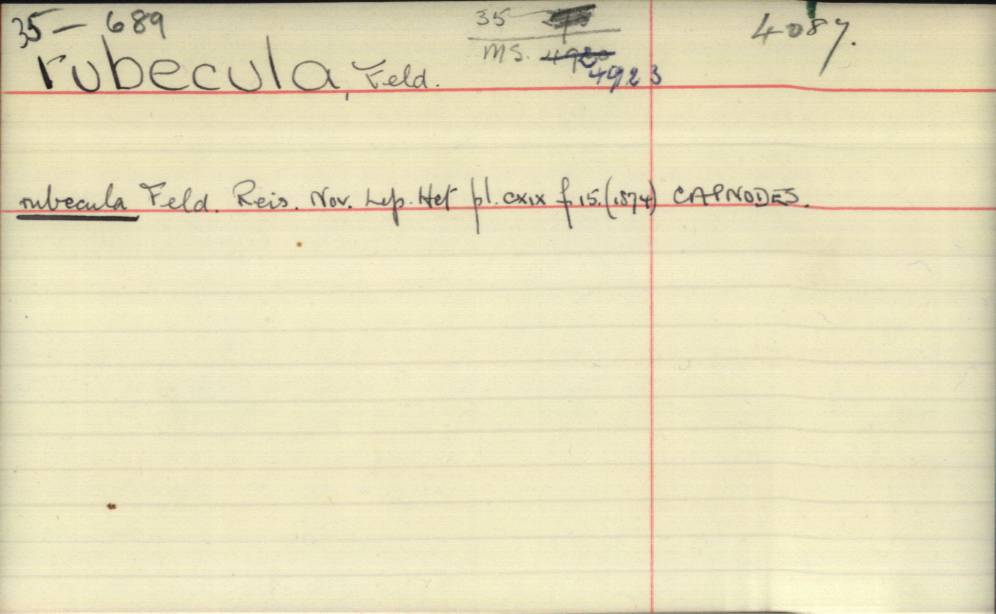 35 — 689
35
4087.
MS. 4923
rubecula, Feld.
rubecula Feld. Reis. Nov. Lep. Het pl. cxix f 15. (1874) CAPNODES.